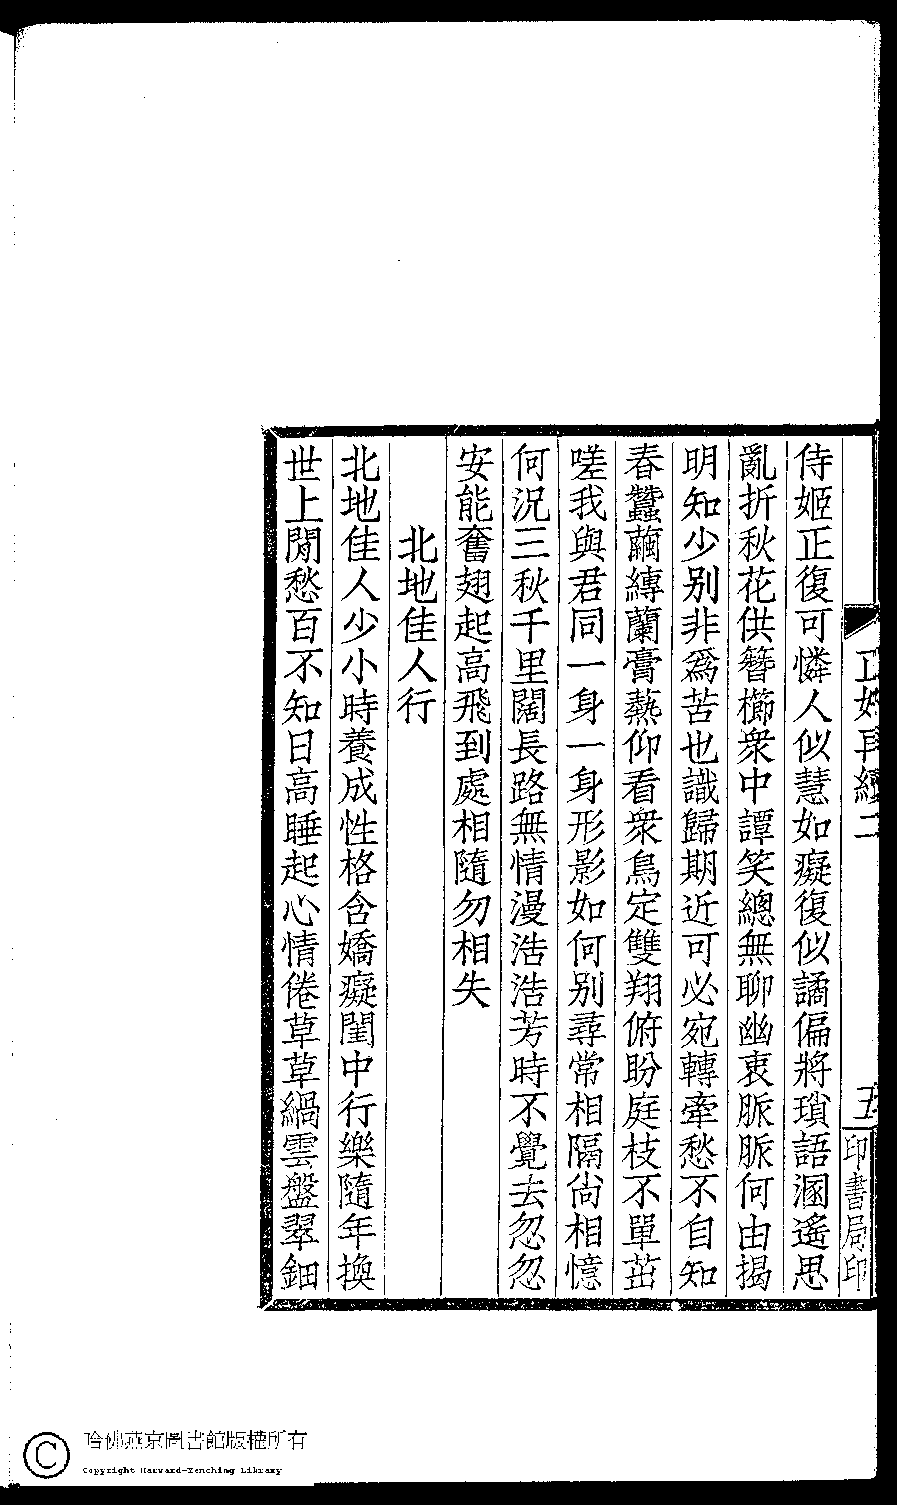 侍姬正復可憐人似慧如癡復似譎偏將瑣語溷遙思
亂折秋花供簪櫛衆中譚笑總無聊幽衷脈脈何由揭
明知少別非爲苦也識歸期近可必宛轉牽愁不自知
春蠶繭縳蘭膏爇仰看衆鳥定雙翔俯盼庭枝不單茁
嗟我與君同一身一身形影如何別尋常相隔尙相憶
何況三秋千里闊長路無情漫浩浩芳時不覺去忽忽
安能奮翅起高飛到處相隨勿相失
北地佳人行
北地佳人少小時養成性格含嬌癡閨中行樂隨年換
世上閒愁百不知日高睡起心情倦草草緺雲盤翠鈿
再續二
五
印書局印
哈佛燕京圖書館版權所有
Copyright Harvard-Yenching Library